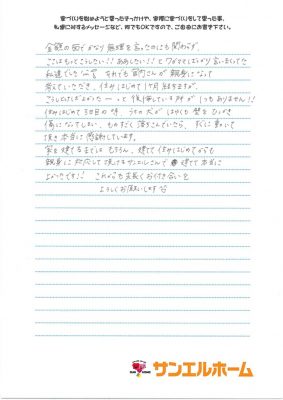 家づくりを始めようと思ったきっかけや、実際に家づくりをして思った事、
私達に対するメッセージなど、何でもOKですので、ご自由にお書き下さい。
金額の面でかなり無理を言ったのにも関わらず、
ここはもっとこうしたい!! ああしたい!! とワガママばかり言いまくってた
私達でしたが、それでも皆さんが親身になって
考えていただき、住みはじめて1ヶ月経ちますが、
こうしとけばよかったーっと後悔している所が1つもありません!!
住みはじめて3日目の時、うちの犬がはやくも壁をひっかき
傷になってしまい、ものすごく落ちこんでいたら、すぐに動いて
頂き本当に感謝しています。
家を建てるまではもちろん、建てて住みはじめてからも
親身に対応して頂けるサンエルさんで建てて本当に
よかったです!! これからも末長くお付き合いを
よろしくお願いします
サンエルホーム